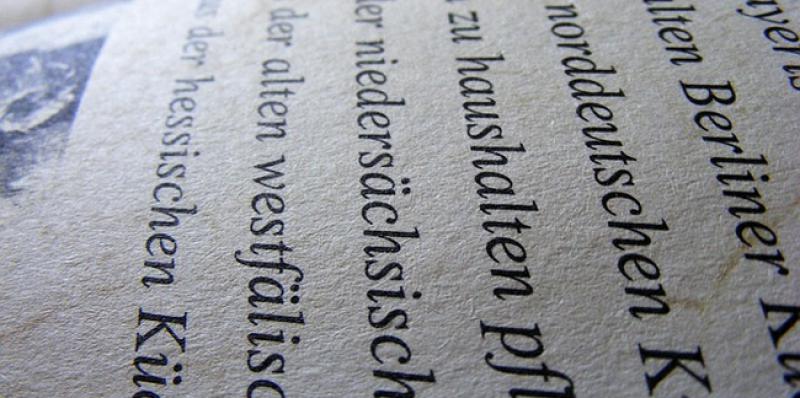 alten Berliner Kü
norddeutschen K
zu haushalten pfl
der niedersächsisch
der alten westfälisc
der hessischen Küc